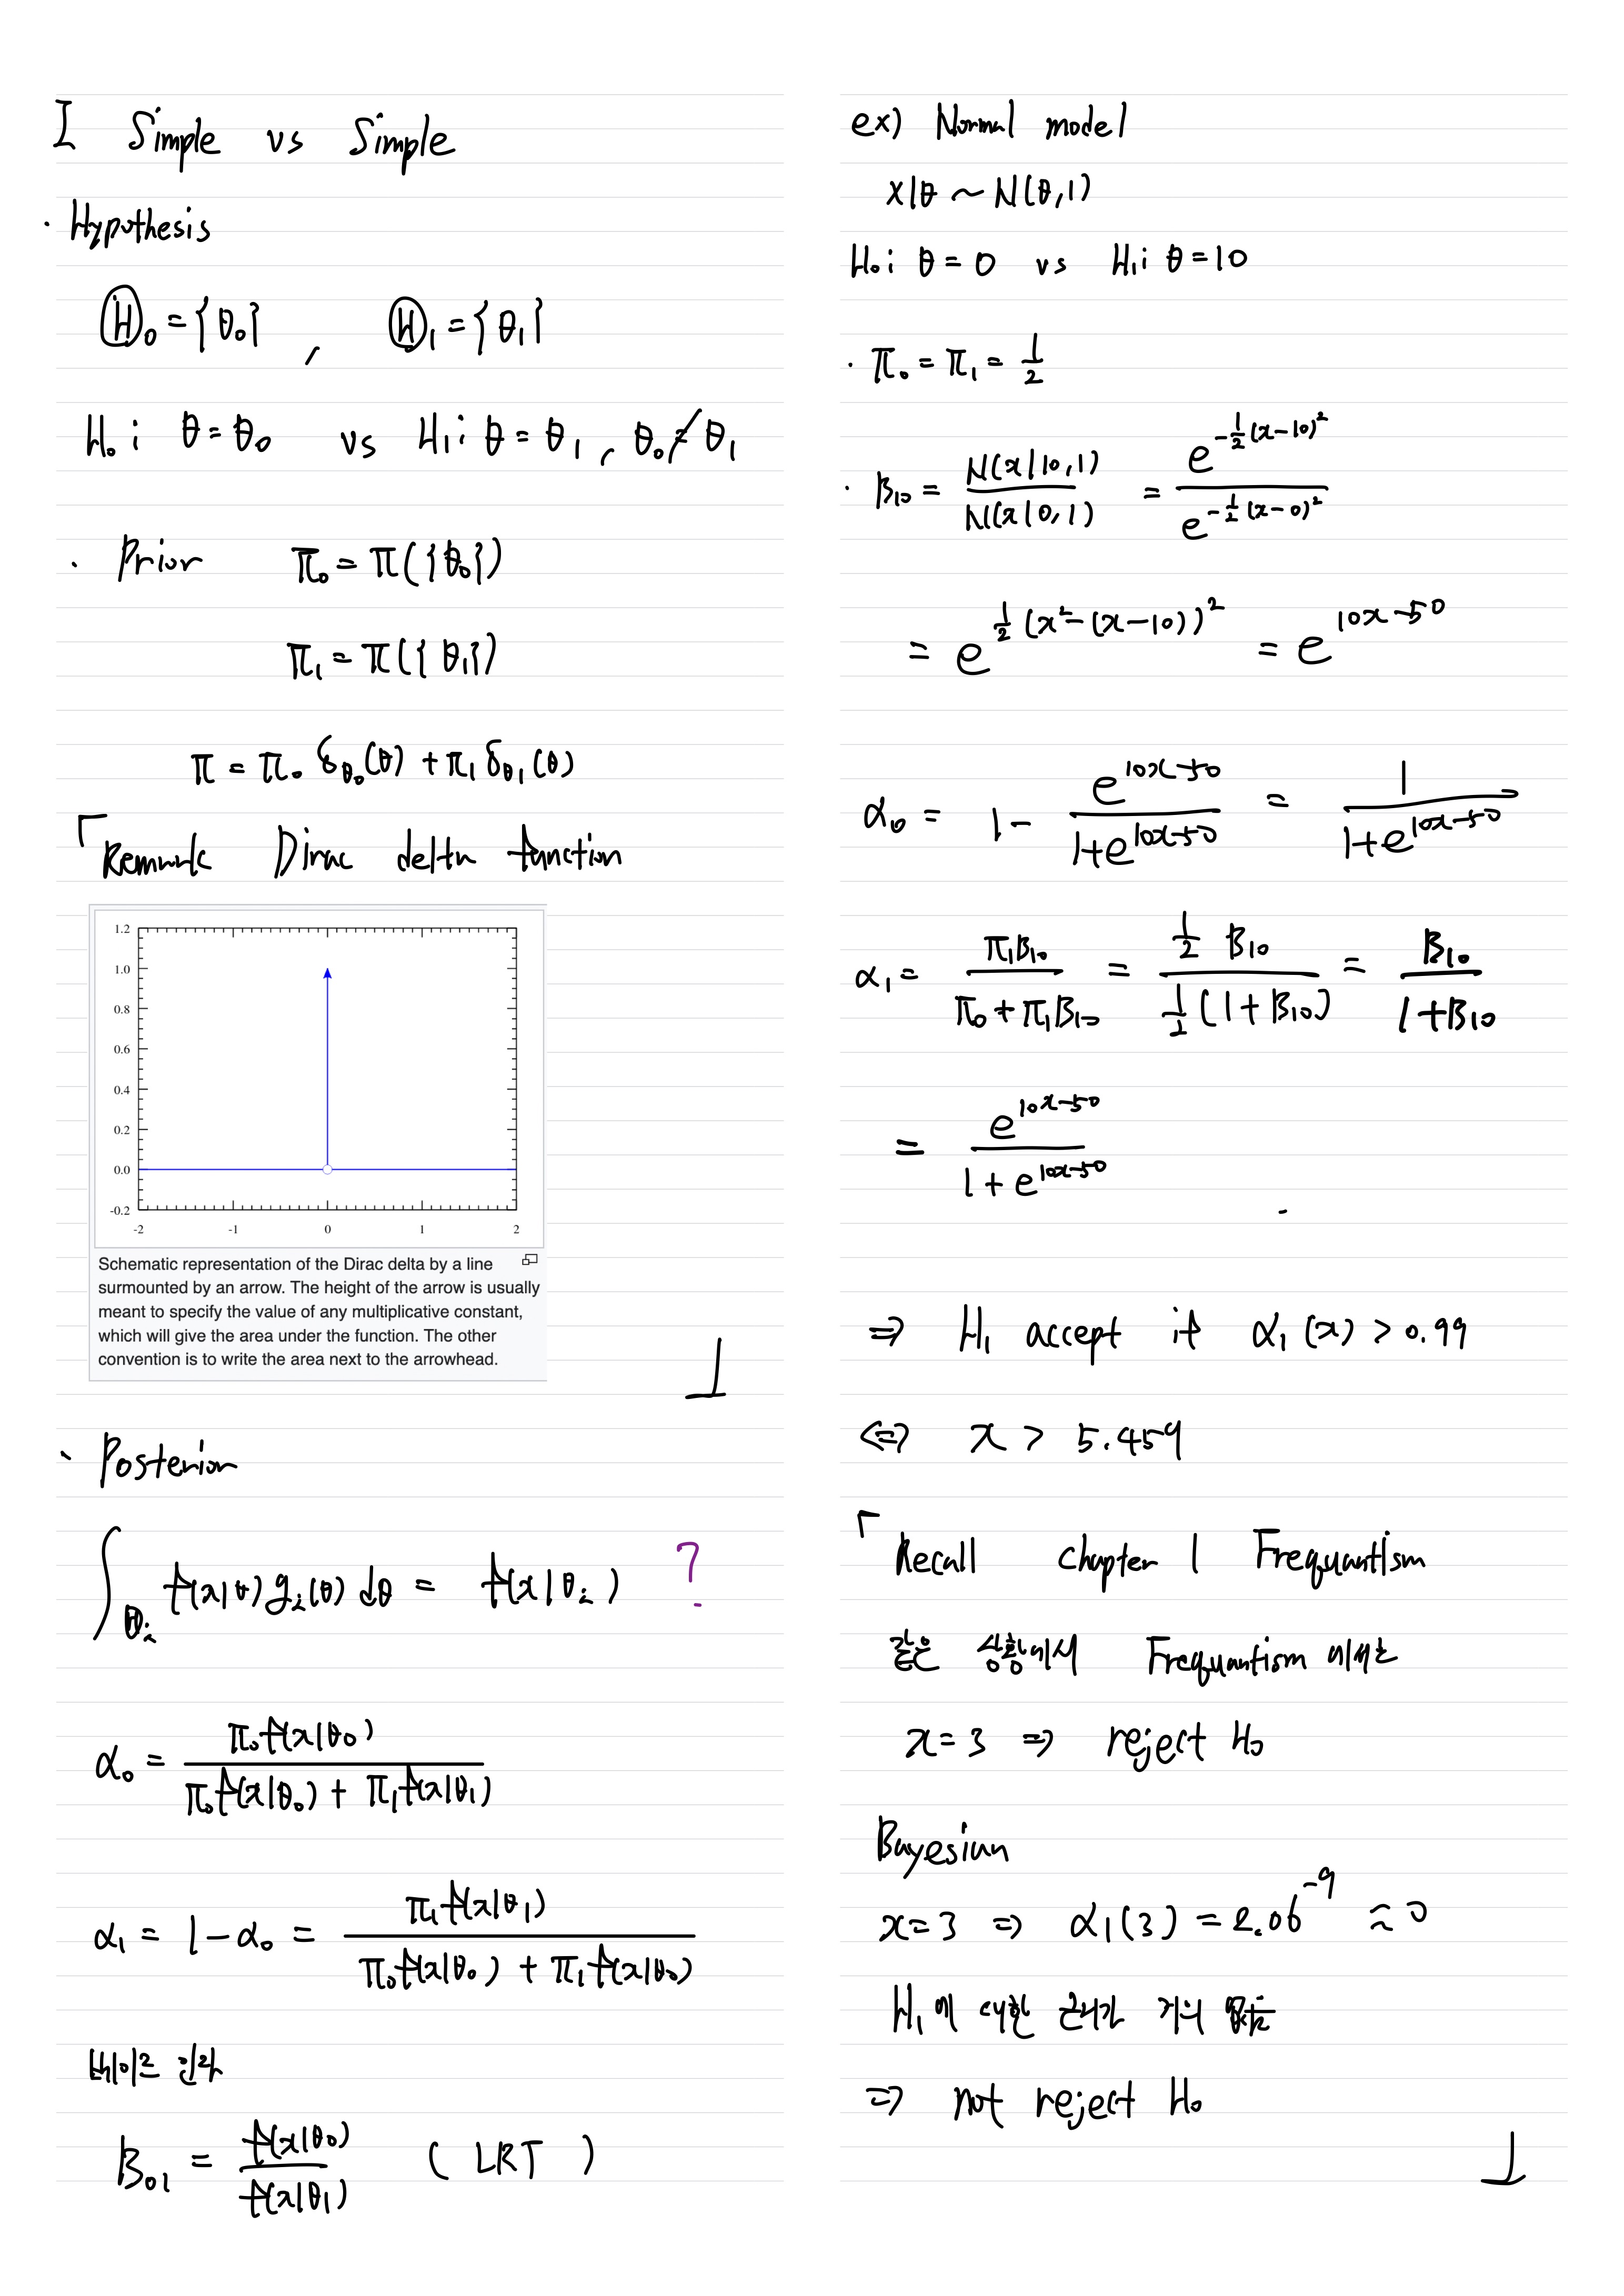 I Simple vs Simple
· Hypothesis
Ⓗ₀ = {θ₀} , Ⓗ₁ = {θ₁}
H₀ : θ = θ₀ vs H₁ : θ = θ₁ , θ₀ ≠ θ₁
· Prior π₀ = π({θ₀})
π₁ = π({θ₁})
π = π₀ δ_θ₀(θ) + π₁ δ_θ₁(θ)
「 Remark Dirac delta function
1.2
1.0
0.8
0.6
0.4
0.2
0.0
-0.2
-2 -1 0 1 2
Schematic representation of the Dirac delta by a line
surmounted by an arrow. The height of the arrow is usually
meant to specify the value of any multiplicative constant,
which will give the area under the function. The other
convention is to write the area next to the arrowhead.
」
· Posterior
∫_Ⓗᵢ f(x|θ) gᵢ(θ) dθ = f(x|θᵢ) ?
α₀ = π₀f(x|θ₀) / (π₀f(x|θ₀) + π₁f(x|θ₁))
α₁ = 1 - α₀ = π₁f(x|θ₁) / (π₀f(x|θ₀) + π₁f(x|θ₀))
베이즈 인자
B₀₁ = f(x|θ₀) / f(x|θ₁) ( LRT )
ex) Normal model
x|θ ~ N(θ,1)
H₀ : θ = 0 vs H₁ : θ = 10
· π₀ = π₁ = 1/2
· B₁₀ = N(x|10,1) / N(x|0,1) = e^(-1/2 (x-10)²) / e^(-1/2 (x-0)²)
= e^(1/2 (x² - (x-10))²) = e^(10x-50)
α₀ = 1 - e^(10x-50) / (1+e^(10x-50)) = 1 / (1+e^(10x-50))
α₁ = π₁B₁₀ / (π₀ + π₁B₁₀) = 1/2 B₁₀ / (1/2 (1+B₁₀)) = B₁₀ / (1+B₁₀)
= e^(10x-50) / (1+e^(10x-50))
⇒ H₁ accept if α₁(x) > 0.99
⇔ x > 5.459
「 Recall chapter 1 Frequantism
같은 상황에서 Frequantism 에서는
x = 3 ⇒ reject H₀
Bayesian
x = 3 ⇒ α₁(3) = 2.06⁻⁹ ≈ 0
H₁에 대한 근거가 거의
⇒ not reject H₀
」